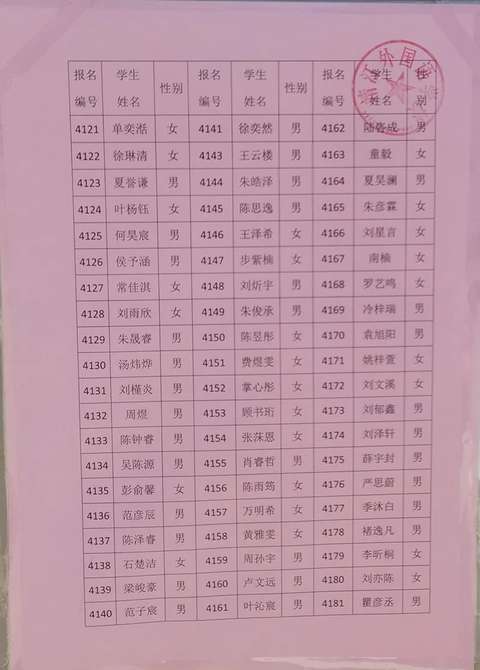 报名编号 学生姓名 性别 报名编号 学生姓名 性别 报名编号 学生姓名 性别
4121 单奕湉 女 4141 徐奕然 男 4162 陆咨成 男
4122 徐琳清 女 4143 王云楼 男 4163 童毅 女
4123 夏誉谦 男 4144 朱皓泽 男 4164 夏昊澜 男
4124 叶杨钰 女 4145 陈思逸 男 4165 朱彦霖 女
4125 何昊宸 男 4146 王泽希 女 4166 刘星言 女
4126 侯予涵 男 4147 步紫楠 女 4167 南榆 女
4127 常佳淇 女 4148 刘炘宇 男 4168 罗艺鸣 女
4128 刘雨欣 女 4149 朱俊承 男 4169 冷梓瑞 男
4129 朱晟睿 男 4150 陈昱彤 女 4170 袁旭阳 男
4130 汤炜烨 男 4151 费煜雯 女 4171 姚梓萱 女
4131 刘槿炎 男 4152 掌心彤 女 4172 刘文溪 女
4132 周煜 男 4153 顾书珩 女 4173 刘郁鑫 男
4133 陈钟睿 男 4154 张莯恩 女 4174 刘泽轩 男
4134 吴陈源 男 4155 肖睿哲 男 4175 薛宇封 男
4135 彭俞馨 女 4156 陈雨筠 女 4176 严思蔚 男
4136 范彦辰 男 4157 万明希 女 4177 季沐白 男
4137 陈泽睿 男 4158 黄雅雯 女 4178 褚逸凡 男
4138 石楚洁 女 4159 周孙宇 男 4179 李昕桐 女
4139 梁峻豪 男 4160 卢文远 男 4180 刘亦陈 女
4140 范子宸 男 4161 叶沁宸 男 4181 瞿彦丞 男